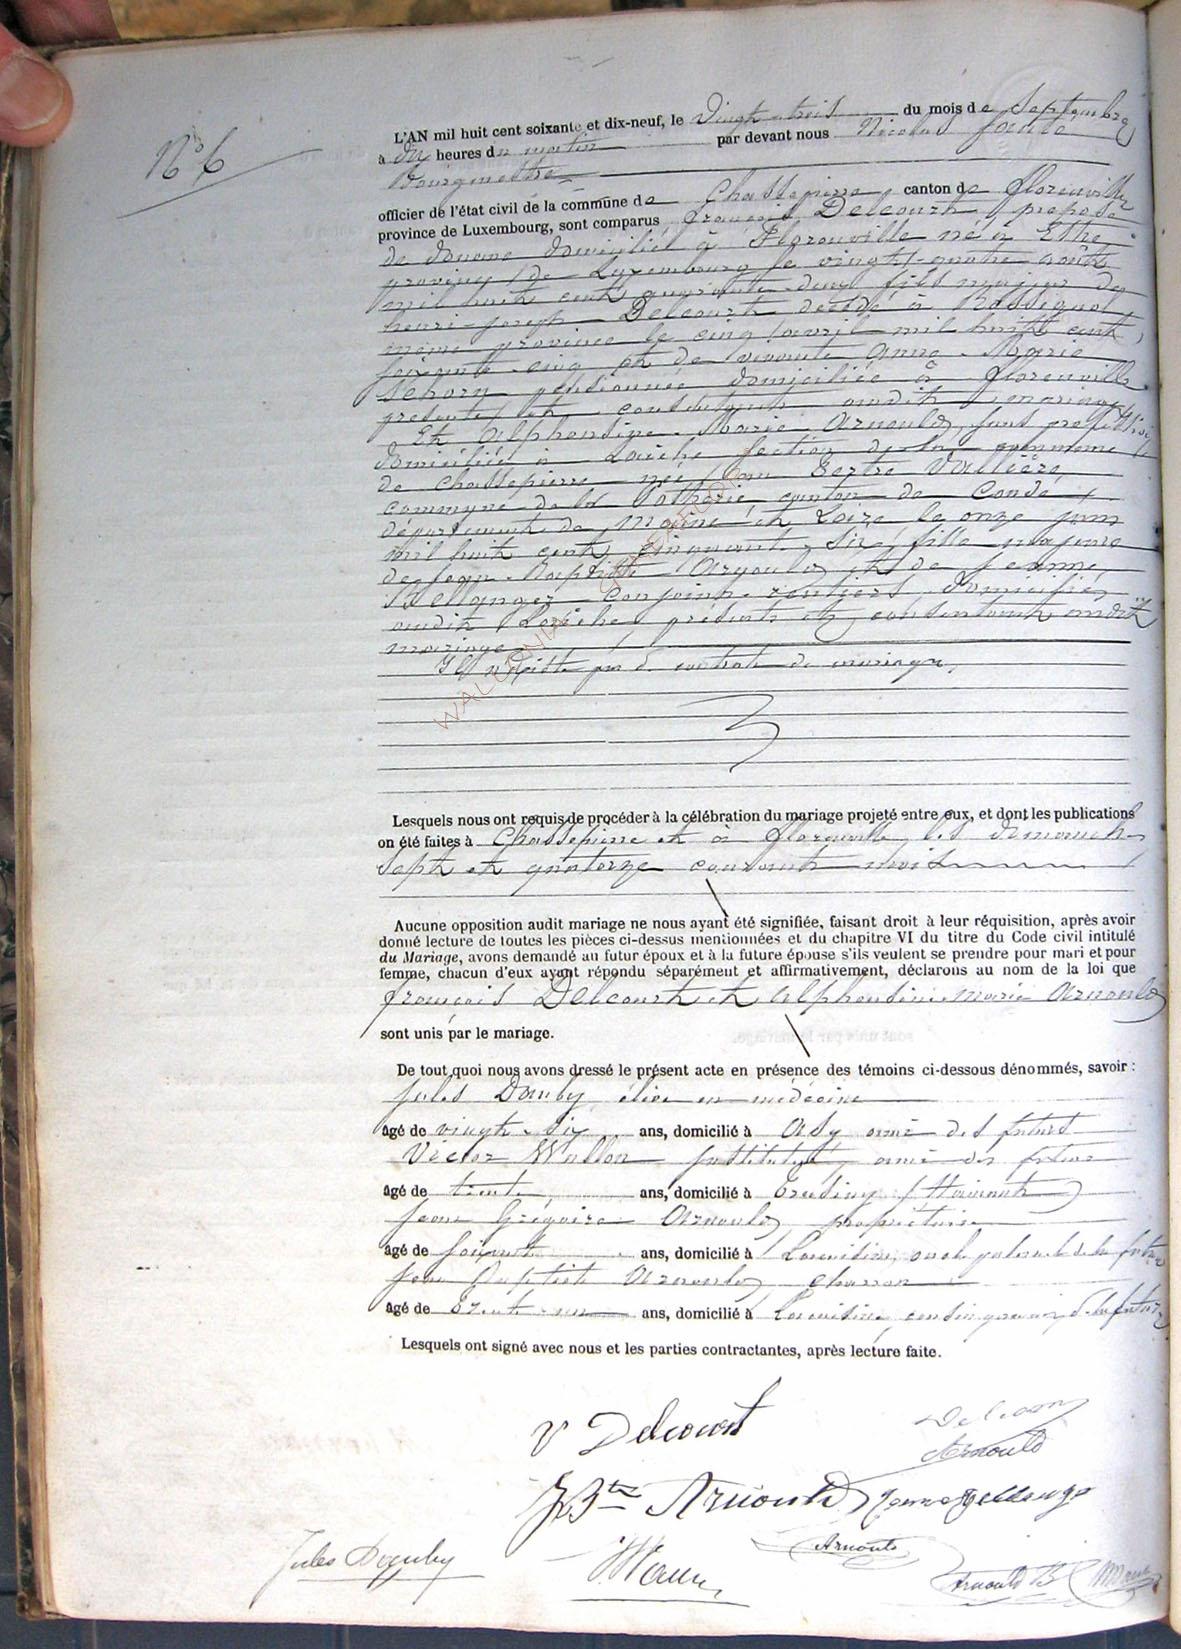 N° 6
L'AN mil huit cent soixante et dix-neuf, le Vingt-trois du mois de Septembre
à dix heures du matin par devant nous Nicolas
Bourgmestre
officier de l'état civil de la commune de Chassepierre, canton de Florenville
province de Luxembourg, sont comparus François Delcourt, préposé
de Douane domicilié à Florenville né à Ethe,
province de Luxembourg le vingt-quatre août
mil huit cent quarante-deux, fils majeur de
henri-joseph Delcourt décédé à Rossignol
même province le cinq avril mil huit cent
soixante-cinq et de vivante Anne-Marie
pensionnée domiciliée à Florenville
présente et consentant audit mariage
Et Alphonsine-Marie Arnould, sans profession
domiciliée à Laiche section de la commune
de Chassepierre née au Tertre Vallière
commune de la Potherie canton de Condé
département de Maine et Loire le onze juin
mil huit cent cinquante-six, fille majeure
de jean-Baptiste Arnould et de jeanne
Bellanger conjoints rentiers domiciliés
audit Laiche présents et consentant audit
mariage
Il n'existe pas de contrat de mariage,
WALLONIA GENEAFOR
Lesquels nous ont requis de procéder à la célébration du mariage projeté entre eux, et dont les publications
on été faites à Chassepierre et à Florenville les dimanches
sept et quatorze courant mois
Aucune opposition audit mariage ne nous ayant été signifiée, faisant droit à leur réquisition, après avoir
donné lecture de toutes les pièces ci-dessus mentionnées et du chapitre VI du titre du Code civil intitulé
du Mariage, avons demandé au futur époux et à la future épouse s'ils veulent se prendre pour mari et pour
femme, chacun d'eux ayant répondu séparément et affirmativement, déclarons au nom de la loi que
françois Delcourt et Alphonsine-Marie Arnould
sont unis par le mariage.
De tout quoi nous avons dressé le présent acte en présence des témoins ci-dessous dénommés, savoir :
Jules Dauby, élève en médecine
âgé de vingt-six ans, domicilié à Asy ami des futurs
Victor Wallon instituteur, ami des futurs
âgé de trente ans, domicilié à (Hainaut)
Jean Grégoire Arnould, propriétaire
âgé de soixante ans, domicilié à Lacuisine, oncle paternel de la future
Jean Baptiste Arnould, charron
âgé de Trente-un ans, domicilié à Lacuisine, cousin germain de la future
Lesquels ont signé avec nous et les parties contractantes, après lecture faite.
V Delcourt
Arnould
JBte Arnould Jeanne Bellanger
Arnould
Jules Dauby
Arnould B